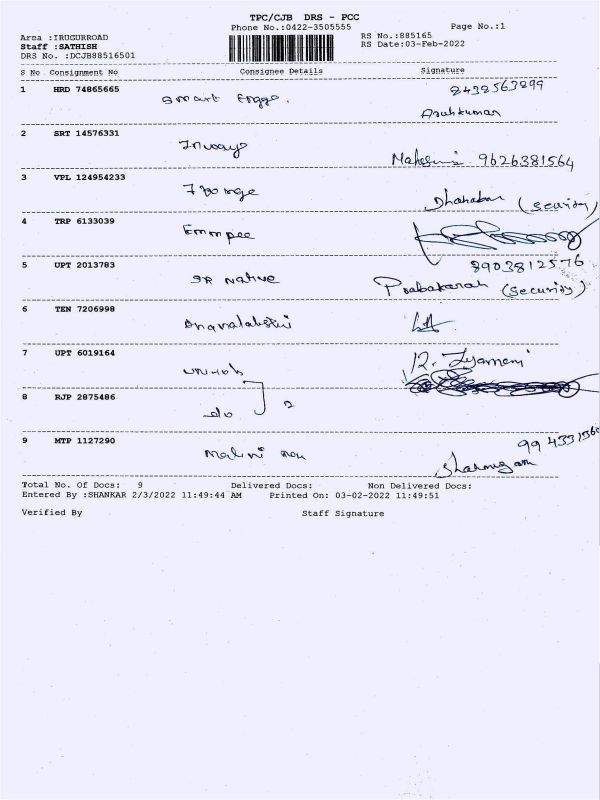 TPC/CJB DRS - PCC
Phone No.:0422-3505555
Page No.:1
Area :IRUGURROAD
RS No.:885165
Staff :SATHISH
RS Date:03-Feb-2022
DRS No. :DCJB88516501
S No Consignment No Consignee Details Signature
1 HRD 74865665 Smart Engg. 8438563899
2 SRT 14576331
9626381564
3 VPL 124954233 Dhanabal (Security)
4 TRP 6133039 Emmpee
5 UPT 2013783 SR Native 8903812576
Prabakaran (Security)
6 TEN 7206998
7 UPT 6019164
8 RJP 2875486 do 2
9 MTP 1127290
Shanmugam
Total No. Of Docs: 9 Delivered Docs: Non Delivered Docs:
Entered By :SHANKAR 2/3/2022 11:49:44 AM Printed On: 03-02-2022 11:49:51
Verified By Staff Signature